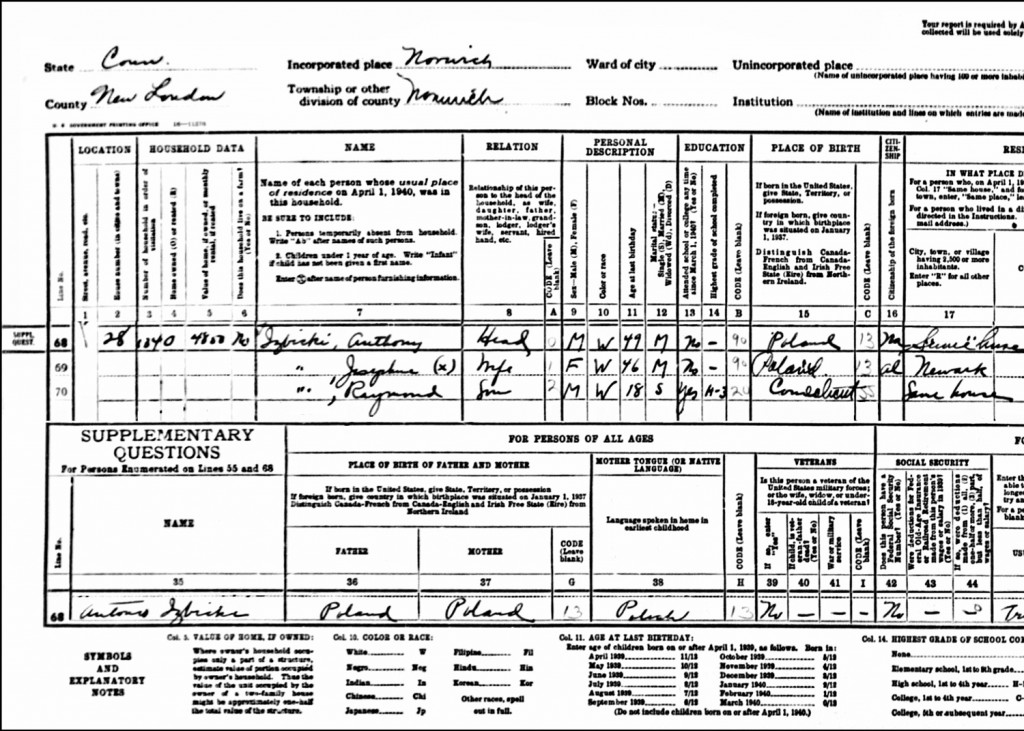 Your report is required by A
collected will be used solely
State Conn. Incorporated place Norwich Ward of city Unincorporated place
(Name of unincorporated place having 100 or more inhabi
County New London Township or other
division of county Norwich Block Nos. Institution
(Name of institution and lines on which entries are mad
U. S. GOVERNMENT PRINTING OFFICE
LOCATION HOUSEHOLD DATA NAME RELATION PERSONAL DESCRIPTION EDUCATION PLACE OF BIRTH CITIZENSHIP RES
Line No.
Street, avenue, road, etc.
House number (in cities and towns)
Number of household in order of visitation
Home owned (O) or rented (R)
Value of home, if owned, or monthly rental, if rented
Does this household live on a farm? (Yes or No)
Name of each person whose usual place
of residence on April 1, 1940, was in
this household.
BE SURE TO INCLUDE:
1. Persons temporarily absent from household.
Write "Ab" after names of such persons.
2. Children under 1 year of age. Write "Infant"
if child has not been given a first name.
Enter ⓧ after name of person furnishing information.
Relationship of this person
to the head of the
household, as wife,
daughter, father,
mother-in-law, grandson,
lodger, lodger's
wife, servant, hired
hand, etc.
CODE (Leave blank)
Sex—Male (M), Female (F)
Color or race
Age at last birthday
Marital status—
Single (S), Married (M),
Widowed (Wd), Divorced (D)
Attended school or college any time since March 1, 1940? (Yes or No)
Highest grade of school completed
CODE (Leave blank)
If born in the United States,
give State, Territory, or
possession.
If foreign born, give country
in which birthplace
was situated on January
1, 1937.
Distinguish Canada-
French from Canada-
English and Irish Free
State (Eire) from Northern
Ireland.
CODE (Leave blank)
Citizenship of the foreign born
IN WHAT PLACE D
For a person who, on April 1, 19
Col. 17 "Same house," and fo
town, enter, "Same place," le
For a person who lived in a di
directed in the Instructions.
mail address.)
City, town, or village
having 2,500 or more
inhabitants.
Enter "R" for all other
places.
1 2 3 4 5 6 7 8 A 9 10 11 12 13 14 B 15 C 16 17
SUPPL. QUEST. 68 28 1340 4800 No Izbicki, Anthony Head 0 M W 49 M No - 90 Poland 13 Same house
69 " Josephine (x) Wife 1 F W 46 M No - 90 Poland 13 al Newark
70 ", Raymond Son 2 M W 18 S Yes H-3 Connecticut 55 Same house
SUPPLEMENTARY
QUESTIONS
For Persons Enumerated on Lines 55 and 68
FOR PERSONS OF ALL AGES
PLACE OF BIRTH OF FATHER AND MOTHER MOTHER TONGUE (OR NATIVE LANGUAGE) VETERANS SOCIAL SECURITY
If born in the United States, give State, Territory, or possession
If foreign born, give country in which birthplace was situated on January 1, 1937
Distinguish Canada-French from Canada-English and Irish Free State (Eire) from
Northern Ireland
Line No.
NAME FATHER MOTHER CODE (Leave blank)
Language spoken in home in
earliest childhood
CODE (Leave blank)
Is this person a veteran of the
United States military forces;
or the wife, widow, or under-
18-year-old child of a veteran?
If so, enter "Yes"
If child, is veteran-father dead? (Yes or No)
War or military service
CODE (Leave blank)
Does this person have a Federal Social Security Number? (Yes or No)
Were deductions for Federal Old-Age Insurance or Railroad Retirement made from this person's wages or salary in 1939? (Yes or No)
If so, were deductions made from (1) all, (2) one-half or more, (3) part, but less than half, of wages or salary?
35 36 37 G 38 H 39 40 41 I 42 43 44
68 Antonio Izbicki Poland Poland 13 Polish 13 No - - No - -
SYMBOLS
AND
EXPLANATORY
NOTES
Col. 5. VALUE OF HOME, IF OWNED:
Where owner's household occupies
only a part of a structure,
estimate value of portion occupied
by owner's household. Thus the
value of the unit occupied by the
owner of a two-family house
might be approximately one-half
the total value of the structure.
Col. 10. COLOR OR RACE:
White W Filipino Fil
Negro Neg Hindu Hin
Indian In Korean Kor
Chinese Chi Other races, spell
Japanese Jp out in full.
Col. 11. AGE AT LAST BIRTHDAY:
Enter age of children born on or after April 1, 1939, as follows. Born in:
April 1939 11/12 October 1939 5/12
May 1939 10/12 November 1939 4/12
June 1939 9/12 December 1939 3/12
July 1939 8/12 January 1940 2/12
August 1939 7/12 February 1940 1/12
September 1939 6/12 March 1940 0/12
(Do not include children born on or after April 1, 1940.)
Col. 14. HIGHEST GRADE OF SCHOOL CO
None
Elementary school, 1st to 8th grade
High school, 1st to 4th year H-
College, 1st to 4th year C-
College, 5th or subsequent year